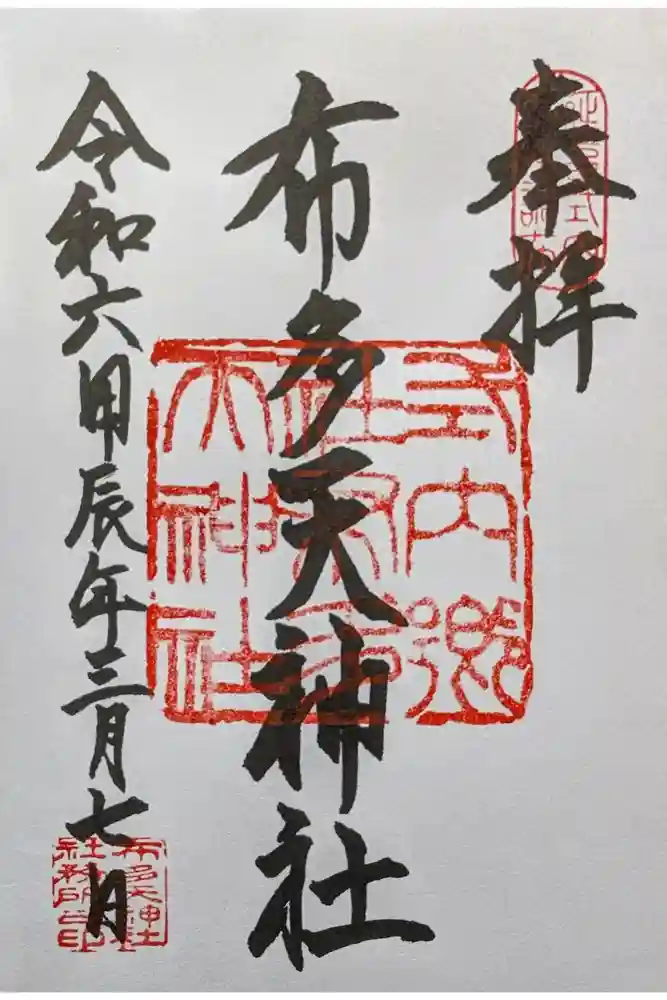 奉拝
布多天神社
令和六甲辰年三月七日
式内郷
社布多
天神社
布多天神社
社務所之印